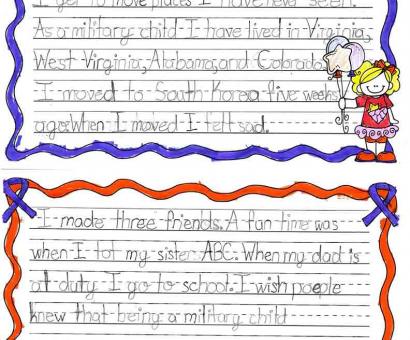 I get to move places I have never seen.
As a military child I have lived in Virginia,
West Virginia, Alabama, and Colorado.
I moved to South Korea five weeks
ago. When I moved I felt sad.
I made three friends. A fun time was
when I tot my sister ABC. When my dad is
at duty I go to school. I wish poeple
knew that being a military child